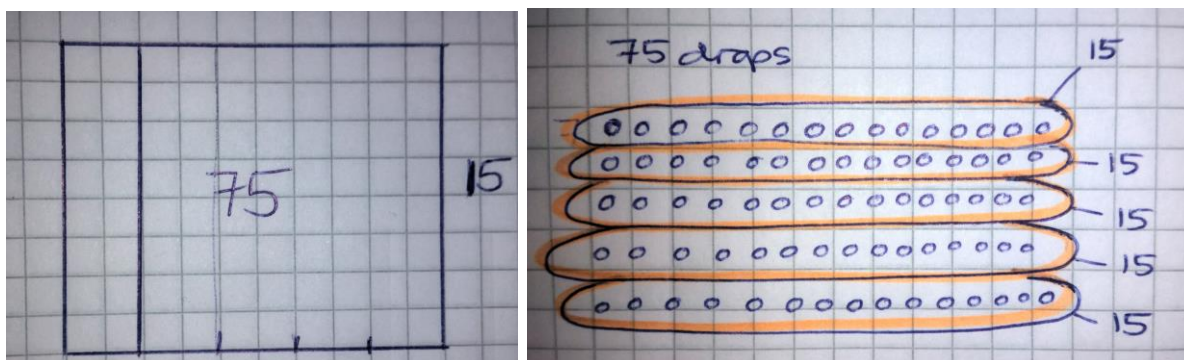 75
15
75 drops
15
15
15
15
15